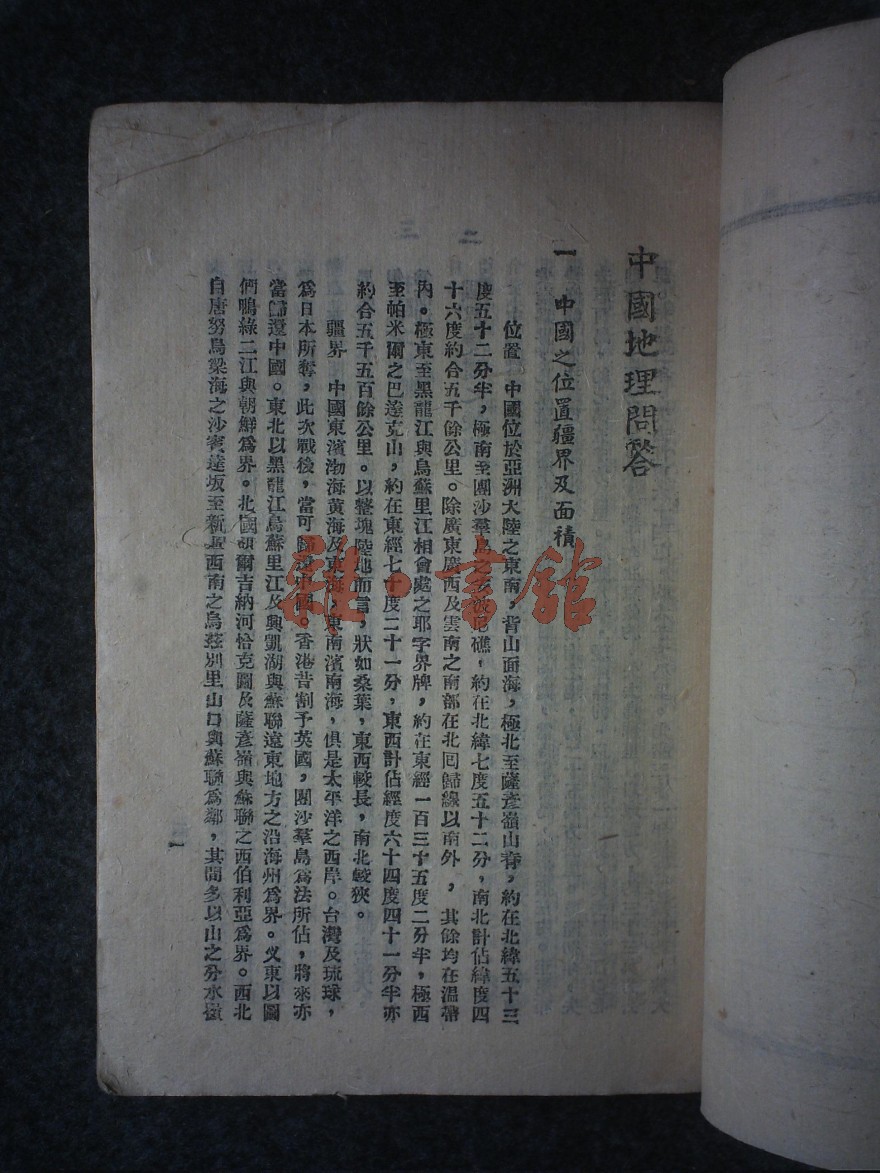 中國地理問答
一 中國之位置疆界及面積
位置 中國位於亞洲大陸之東南，背山面海，極北至薩彥嶺山脊，約在北緯五十三
度五十二分半，極南至團沙羣島之 礁，約在北緯七度五十二分，南北計佔緯度四
十六度約合五千餘公里。除廣東廣西及雲南之南部在北回歸線以南外，其餘均在溫帶
內。極東至黑龍江與烏蘇里江相會處之耶字界牌，約在東經一百三十五度二分半，極西
至帕米爾之巴達克山，約在東經七十度二十一分，東西計佔經度六十四度四十一分半亦
約合五千五百餘公里。以整塊陸地而言，狀如桑葉，東西較長，南北較狹。
疆界 中國東濱渤海黃海及東海，東南濱南海，俱是太平洋之西岸。台灣及琉球，
爲日本所奪，此次戰後，當可歸還中國。香港昔割予英國，團沙羣島爲法所佔，將來亦
當歸還中國。東北以黑龍江烏蘇里江及興凱湖與蘇聯遠東地方之沿海州爲界。又東以圖
們鴨綠二江與朝鮮爲界。北以額爾吉納河恰克圖及薩彥嶺與蘇聯之西伯利亞爲界。西北
自唐努烏梁海之沙賓達坂至新疆西南之烏茲別里山口與蘇聯爲鄰，其間多以山之分水嶺
一
雜·書館